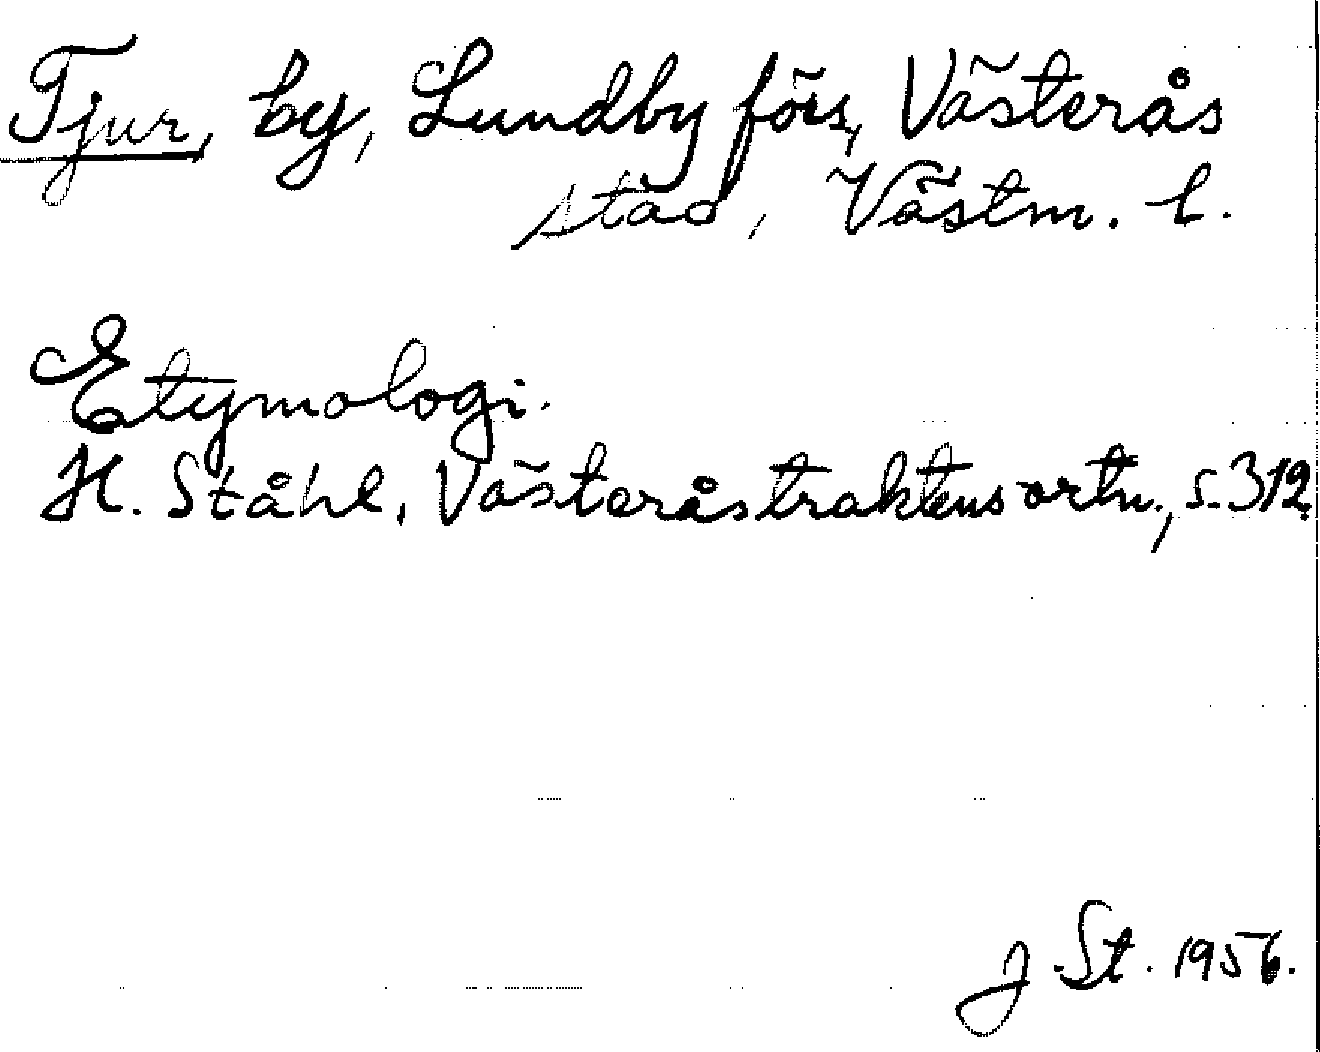 Tjur, by, Lundby förs, Västerås
stad, Västm. l.
Etymologi.
H. Ståhl, Västeråstraktens ortn., s. 312.
J. St. 1956.